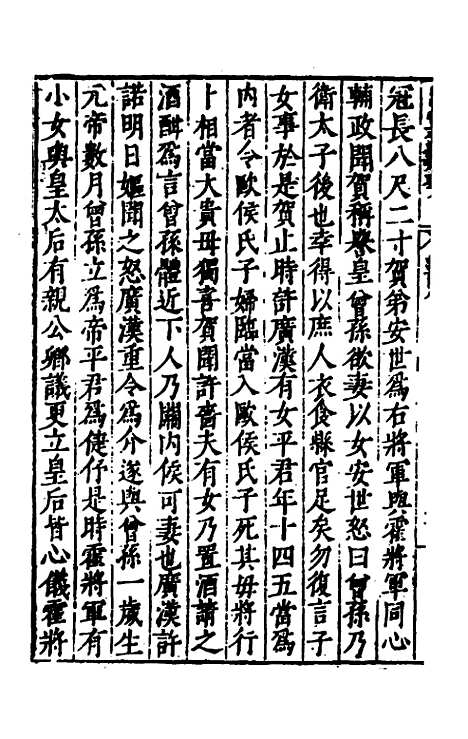 冠長八尺二寸賀弟安世爲右將軍與霍將軍同心
輔政聞賀稱譽皇曾孫欲妻以女安世怒曰曾孫乃
衛太子後也幸得以庶人衣食縣官足矣勿復言予
女事於是賀止時許廣漢有女平君年十四五當爲
内者令歐侯氏子婦臨當入歐侯氏子死其母將行
卜相當大貴母獨喜賀聞許嗇夫有女乃置酒請之
酒酣爲言曾孫體近下人乃關内侯可妻也廣漢許
諾明日嫗聞之怒廣漢重令爲介遂與曾孫一歲生
元帝數月曾孫立爲帝平君爲倢伃是時霍將軍有
小女與皇太后有親公卿議更立皇后皆心儀霍將